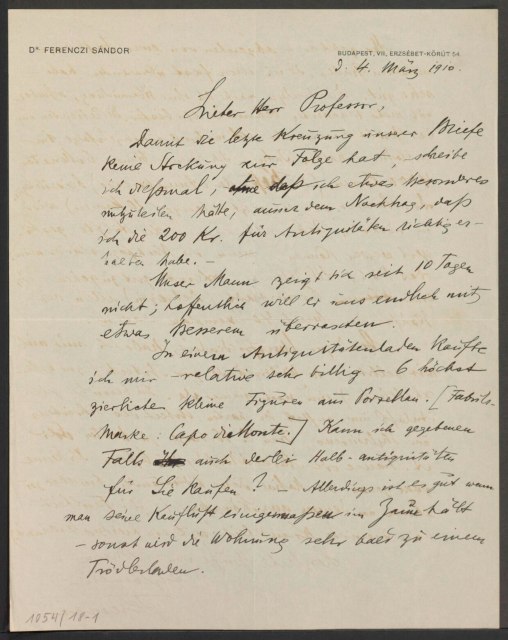 Dr. FERENCZI SÁNDOR
BUDAPEST, VII, ERZSÉBET-KÖRÚT 54.
d. 4. März 1910.
Lieber Herr Professor,
Damit die letzte Kreuzung unserer Briefe
keine Stockung zur Folge hat, schreibe
ich diesmal, ohne daß ich etwas besonderes
mitzuteilen hätte, ausser dem Nachtrag, daß
ich die 200 Kr. für Antiquitäten richtig er-
halten habe. –
Unser Mann zeigt sich seit 10 Tagen
nicht; hoffentlich will er uns endlich mit
etwas Besserem überraschen.
In einem Antiquitätenladen kaufte
ich mir – relative sehr billig – 6 höchst
zierliche kleine Figuren aus Porzellan. [Fabriks-
Marke: Capo di Monte.] Kann ich gegebenen
Falls auch derlei Halb-antiquitäten
für Sie kaufen? – Allerdings ist es gut wenn
man seine Kauflust einigermaßen im Zaune hält
– sonst wird die Wohnung sehr bald zu einem
Trödlerladen.
1054/18-1